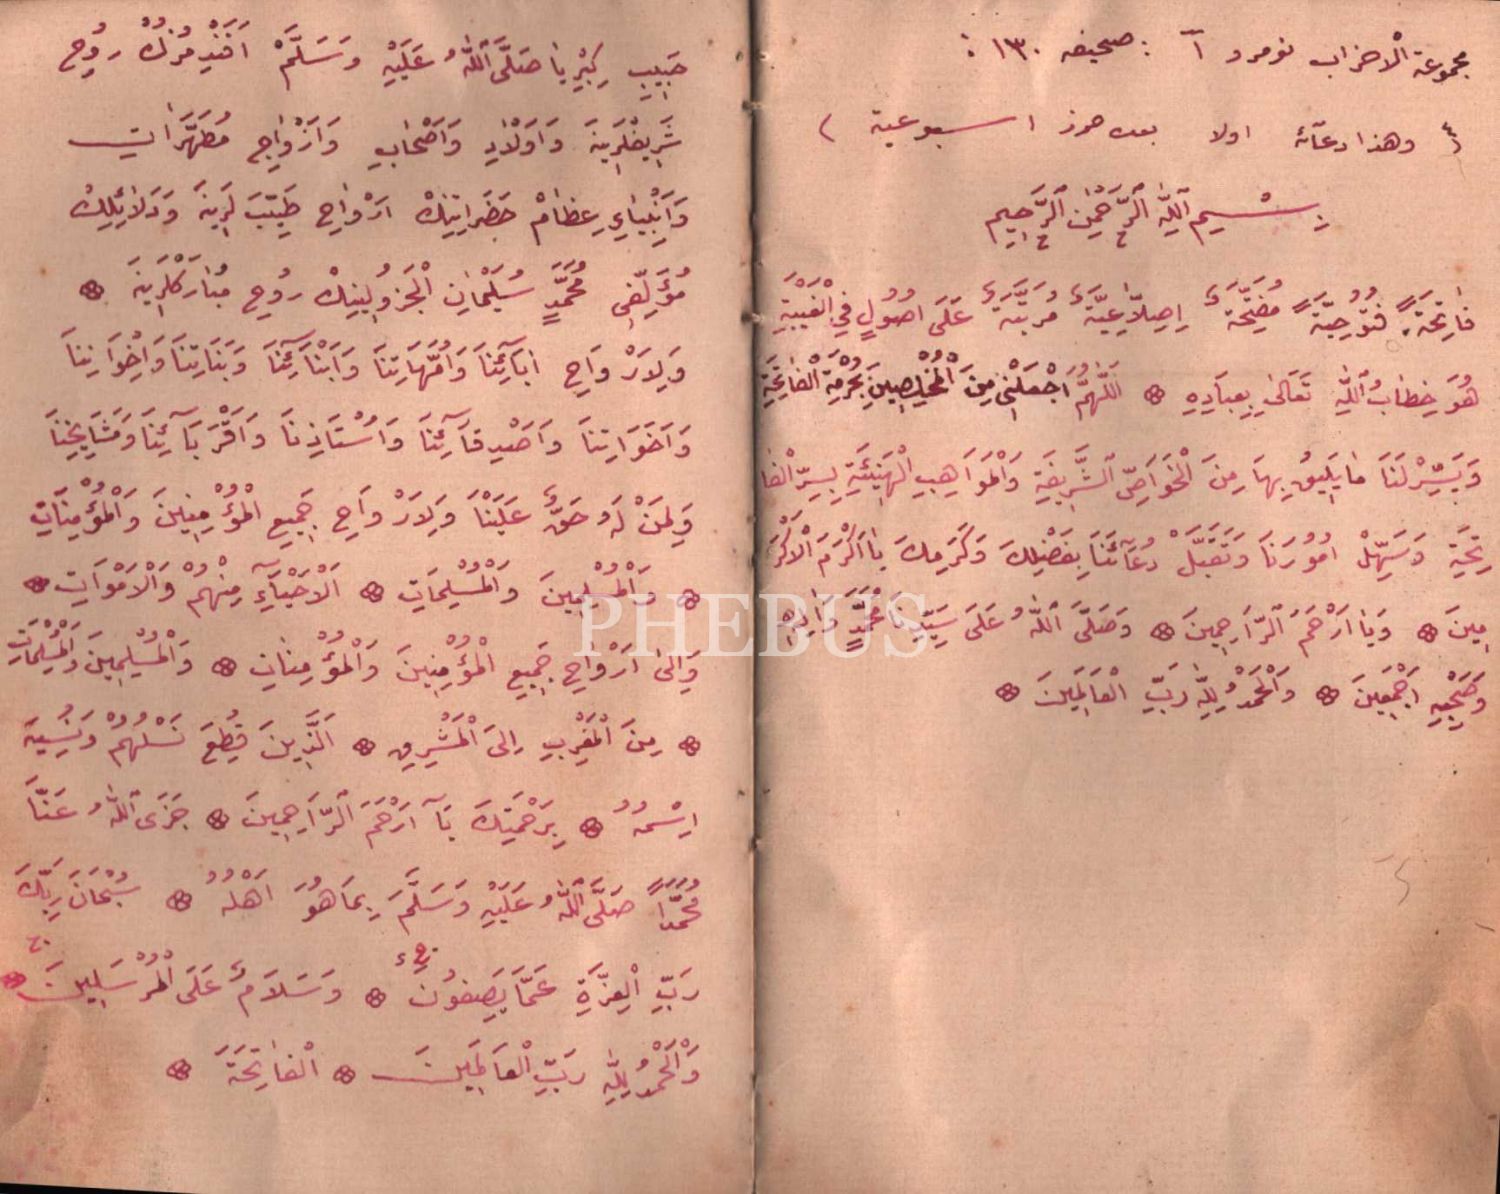 مجموعة الاحزاب نومرو ١ : صحيفه ١٣٠ :
وهذا دعآئه اولا بعده حرز اسبوعية )
بِسْــمِ اللّٰهِ الرَّحْمٰنِ الرَّحِيمِ
فَاتِحَةً فُتُوحِيَّةً مُفَتِّحَةٌ مُرَتَّبَةٌ عَلَى اُصُولٍ فِي الْغَيْبَةِ
هُوَ خِطَابُ اللّٰهِ تَعَالٰى بِعِبَادِهِ ۞ اَللّٰهُمَّ اجْعَلْنِى مِنَ الْمُخْلِصِينَ بِحُرْمَةِ الْفَاتِحَةِ
وَيَسِّرْ لَنَا مَا يَلِيقُ بِهَا مِنَ الْخَوَاصِّ الشَّرِيفَةِ وَالْمَوَاهِبِ الْهَنِيئَةِ بِسِرِّ الْفَا
تِحَةِ وَسَهِّلْ اُمُورَنَا وَتَقَبَّلْ دُعَآئَنَا بِفَضْلِكَ وَكَرَمِكَ يَا اَكْرَمَ الْاَكْرَ
مِينَ ۞ وَيَا اَرْحَمَ الرَّاحِمِينَ ۞ وَصَلَّى اللّٰهُ عَلَى سَيِّدِنَا مُحَمَّدٍ وَاٰلِهِ
وَصَحْبِهِ اَجْمَعِينَ ۞ وَالْحَمْدُ لِلّٰهِ رَبِّ الْعَالَمِينَ ۞
حَبِيبِ كِبْرِيَا صَلَّى اللّٰهُ عَلَيْهِ وَسَلَّمْ اَفَنْدِمُزِكْ رُوحِ
شَرِيفْلَرِينَه وَاَوْلَادِ وَاَصْحَابِ وَاَزْوَاجِ مُطَهَّرَاتِ
وَاَنْبِيَاءِ عِظَامْ حَضَرَاتِنِكْ اَرْوَاحِ طَيِّبَه لَرِينَه وَدَلَائِلِكْ
مُؤَلِّفِى مُحَمَّدٍ سُلَيْمَانِ الْجَزُولِينِكْ رُوحِ مُبَارَكْلَرِينَه ۞
وَلِاَرْوَاحِ اٰبَآئِنَا وَاُمَّهَاتِنَا وَاَبْنَآئِنَا وَبَنَاتِنَا وَاِخْوَانِنَا
وَاَخَوَاتِنَا وَاَصْدِقَآئِنَا وَاُسْتَاذِنَا وَاَقْرَبَآئِنَا وَمَشَايِخِنَا
وَلِمَنْ لَهُ حَقٌّ عَلَيْنَا وَلِاَرْوَاحِ جَمِيعِ الْمُؤْمِنِينَ وَالْمُؤْمِنَاتِ
۞ وَالْمُسْلِمِينَ وَالْمُسْلِمَاتِ ۞ اَلْاَحْيَآءِ مِنْهُمْ وَالْاَمْوَاتِ ۞
وَاِلٰى اَرْوَاحِ جَمِيعِ الْمُؤْمِنِينَ وَالْمُؤْمِنَاتِ ۞ وَالْمُسْلِمِينَ وَالْمُسْلِمَاتِ
۞ مِنَ الْمَغْرِبِ اِلَى الْمَشْرِقِ ۞ اَلَّذِينَ قُطِعَ نَسْلُهُمْ وَنُسِيَهَ
اِسْمُهُ ۞ بِرَحْمَتِكَ يَآ اَرْحَمَ الرَّاحِمِينَ ۞ جَزَى اللّٰهُ عَنَّا
مُحَمَّدًا صَلَّى اللّٰهُ عَلَيْهِ وَسَلَّمَ بِمَا هُوَ اَهْلُهُ ۞ سُبْحَانَ رَبِّكَ
رَبِّ الْعِزَّةِ عَمَّا يَصِفُونَ ۞ وَسَلَامٌ عَلَى الْمُرْسَلِينَ ۞
وَالْحَمْدُ لِلّٰهِ رَبِّ الْعَالَمِينَ ۞ الْفَاتِحَةَ ۞
PHEBUS